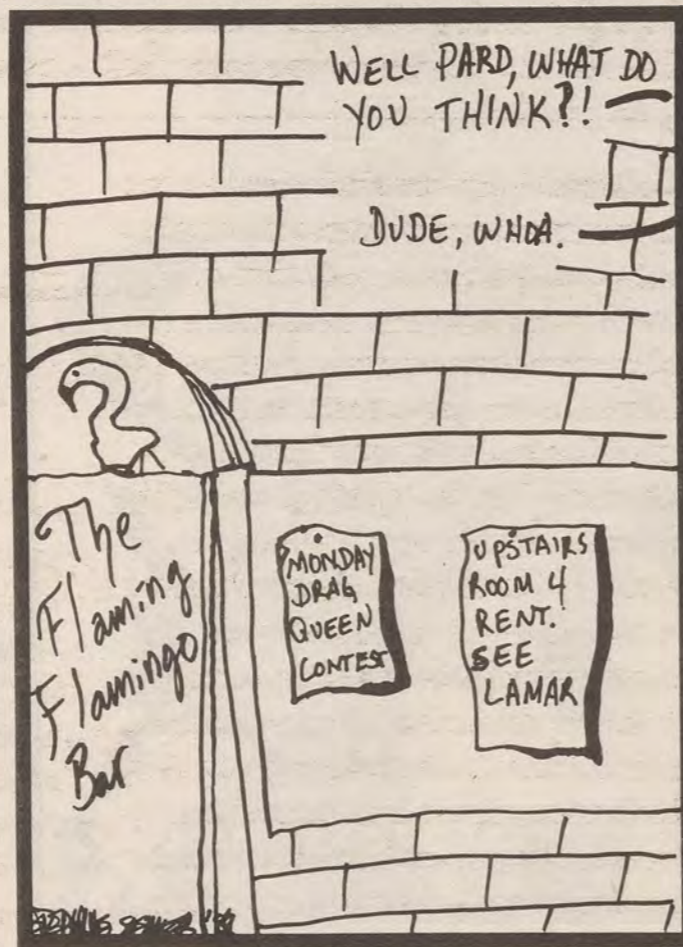 WELL PARD, WHAT DO
YOU THINK?!
DUDE, WHOA.
The
Flaming
Flamingo
Bar
MONDAY
DRAG
QUEEN
CONTEST
UPSTAIRS
ROOM 4
RENT.
SEE
LAMAR